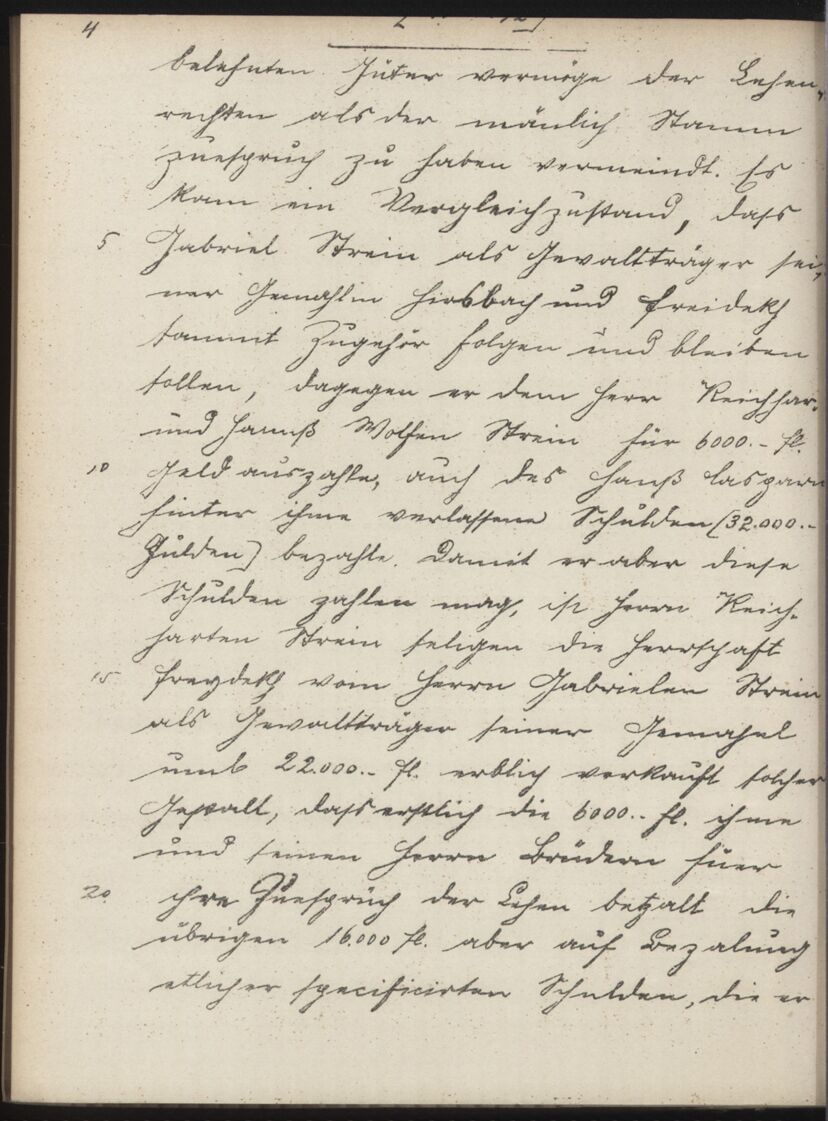 4
belehnten Güter vermöge der Lehen-
rechten als der mänlich Stamm
zuespruch zu haben vermeindt. Es
kam ein Vergleich zustand, dass
5 Gabriel Strein als Gewaltträger sei-
ner Gemahlin Hirsbach und Freidekh
sammt Zugehör folgen und bleiben
sollen, dagegen er dem Herr Reichhar-
und Hannß Wolfen Strein für 6000.- fl.
10 Geld auszahle, auch des Hanß Casparn
hinter ihme verlassene Schulden (32.000.-
Gulden) bezahle. Damit er aber diese
Schulden zahlen mag, ist Herrn Reich-
harten Strein seligen die Herrschaft
15 Freydekh vom Herrn Gabrielen Strein
als Gewaltträger seiner Gemahel
umb 22.000.- fl. erblich verkauft solcher
Gestalt, dass erstlich die 6000.- fl. ihme
und seinen Herrn Brüdern fuer
20 ihre Zuesprüch der Lehen betzalt die
übrigen 16.000 fl. aber auf Bezalung
etlicher specificirten Schulden, die er